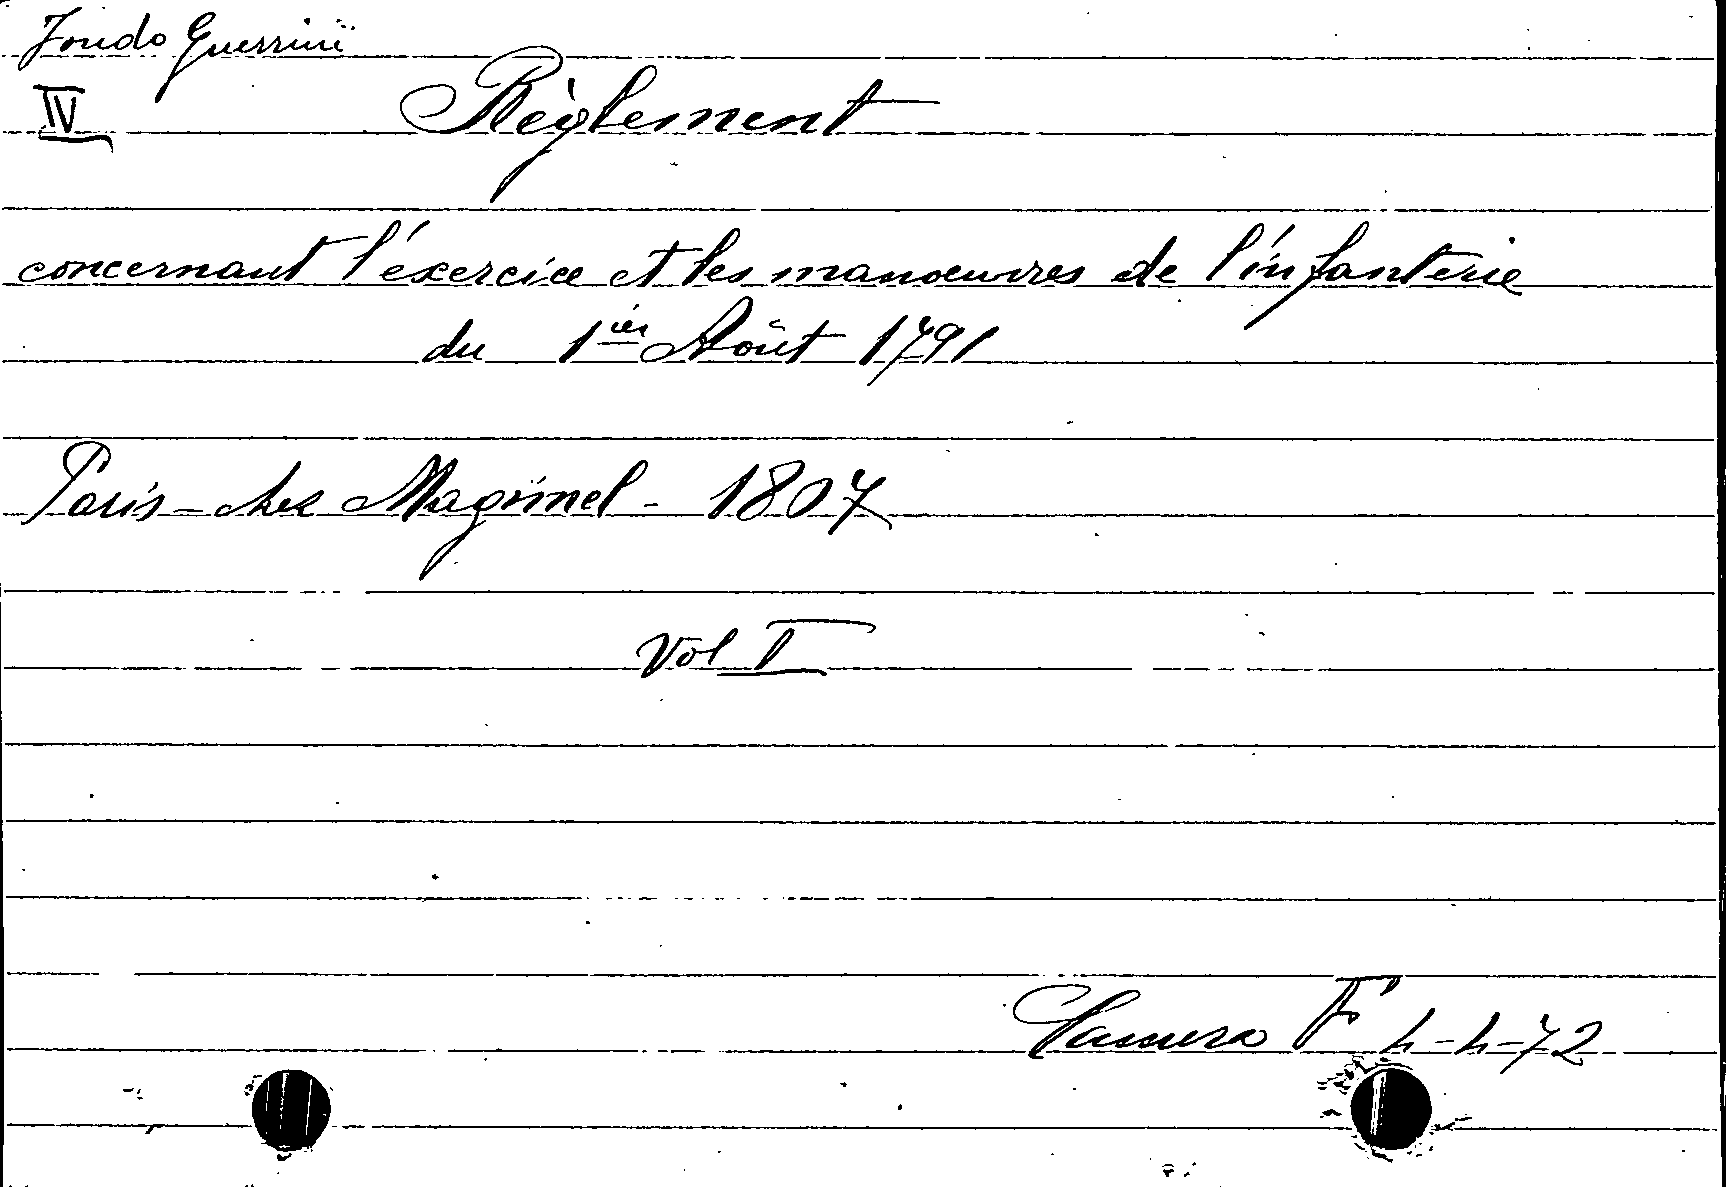 Fondo Guerrini
IV
Règlement
concernant l'éxercice et les manoeuvres de l'infanterie
du 1ier Aôut 1791
Paris - chez Magimel - 1807
Vol I
Camera F 4-4-72